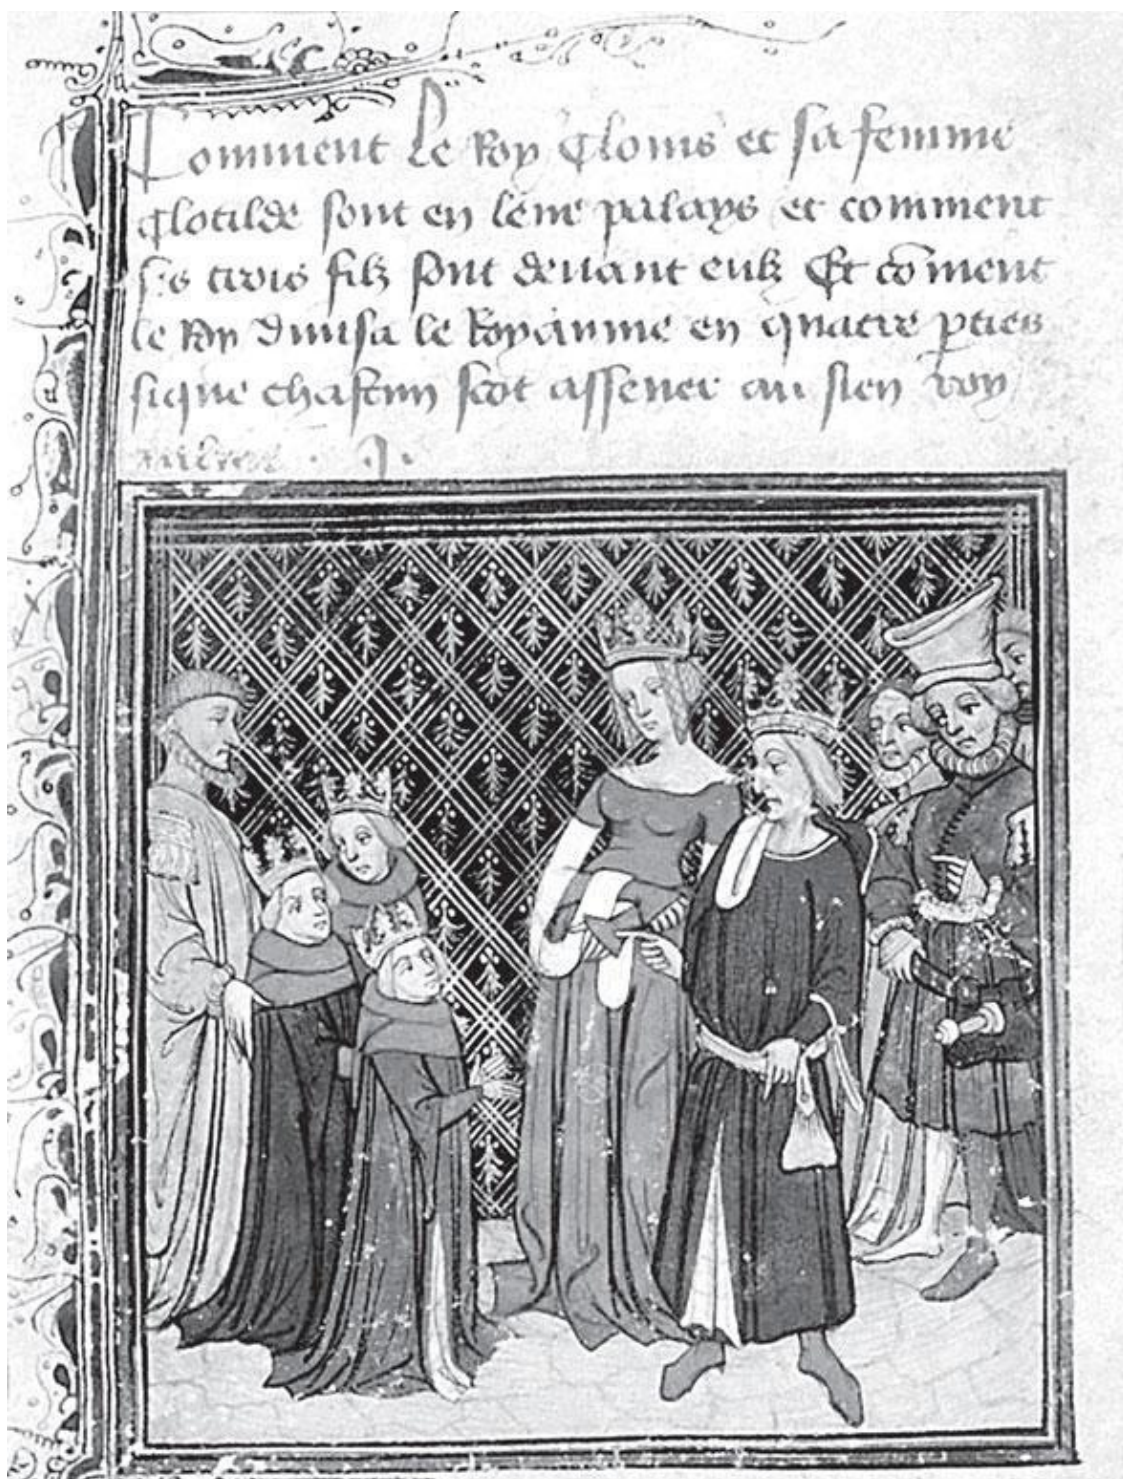 Comment Le Roy Clouis et sa femme
Clotilde sont en leur palays et comment
ses trois filz sont deuant eulz Et cōment
le Roy diuisa le Royaume en quatre pties
sique chascun scot assener au sien roy